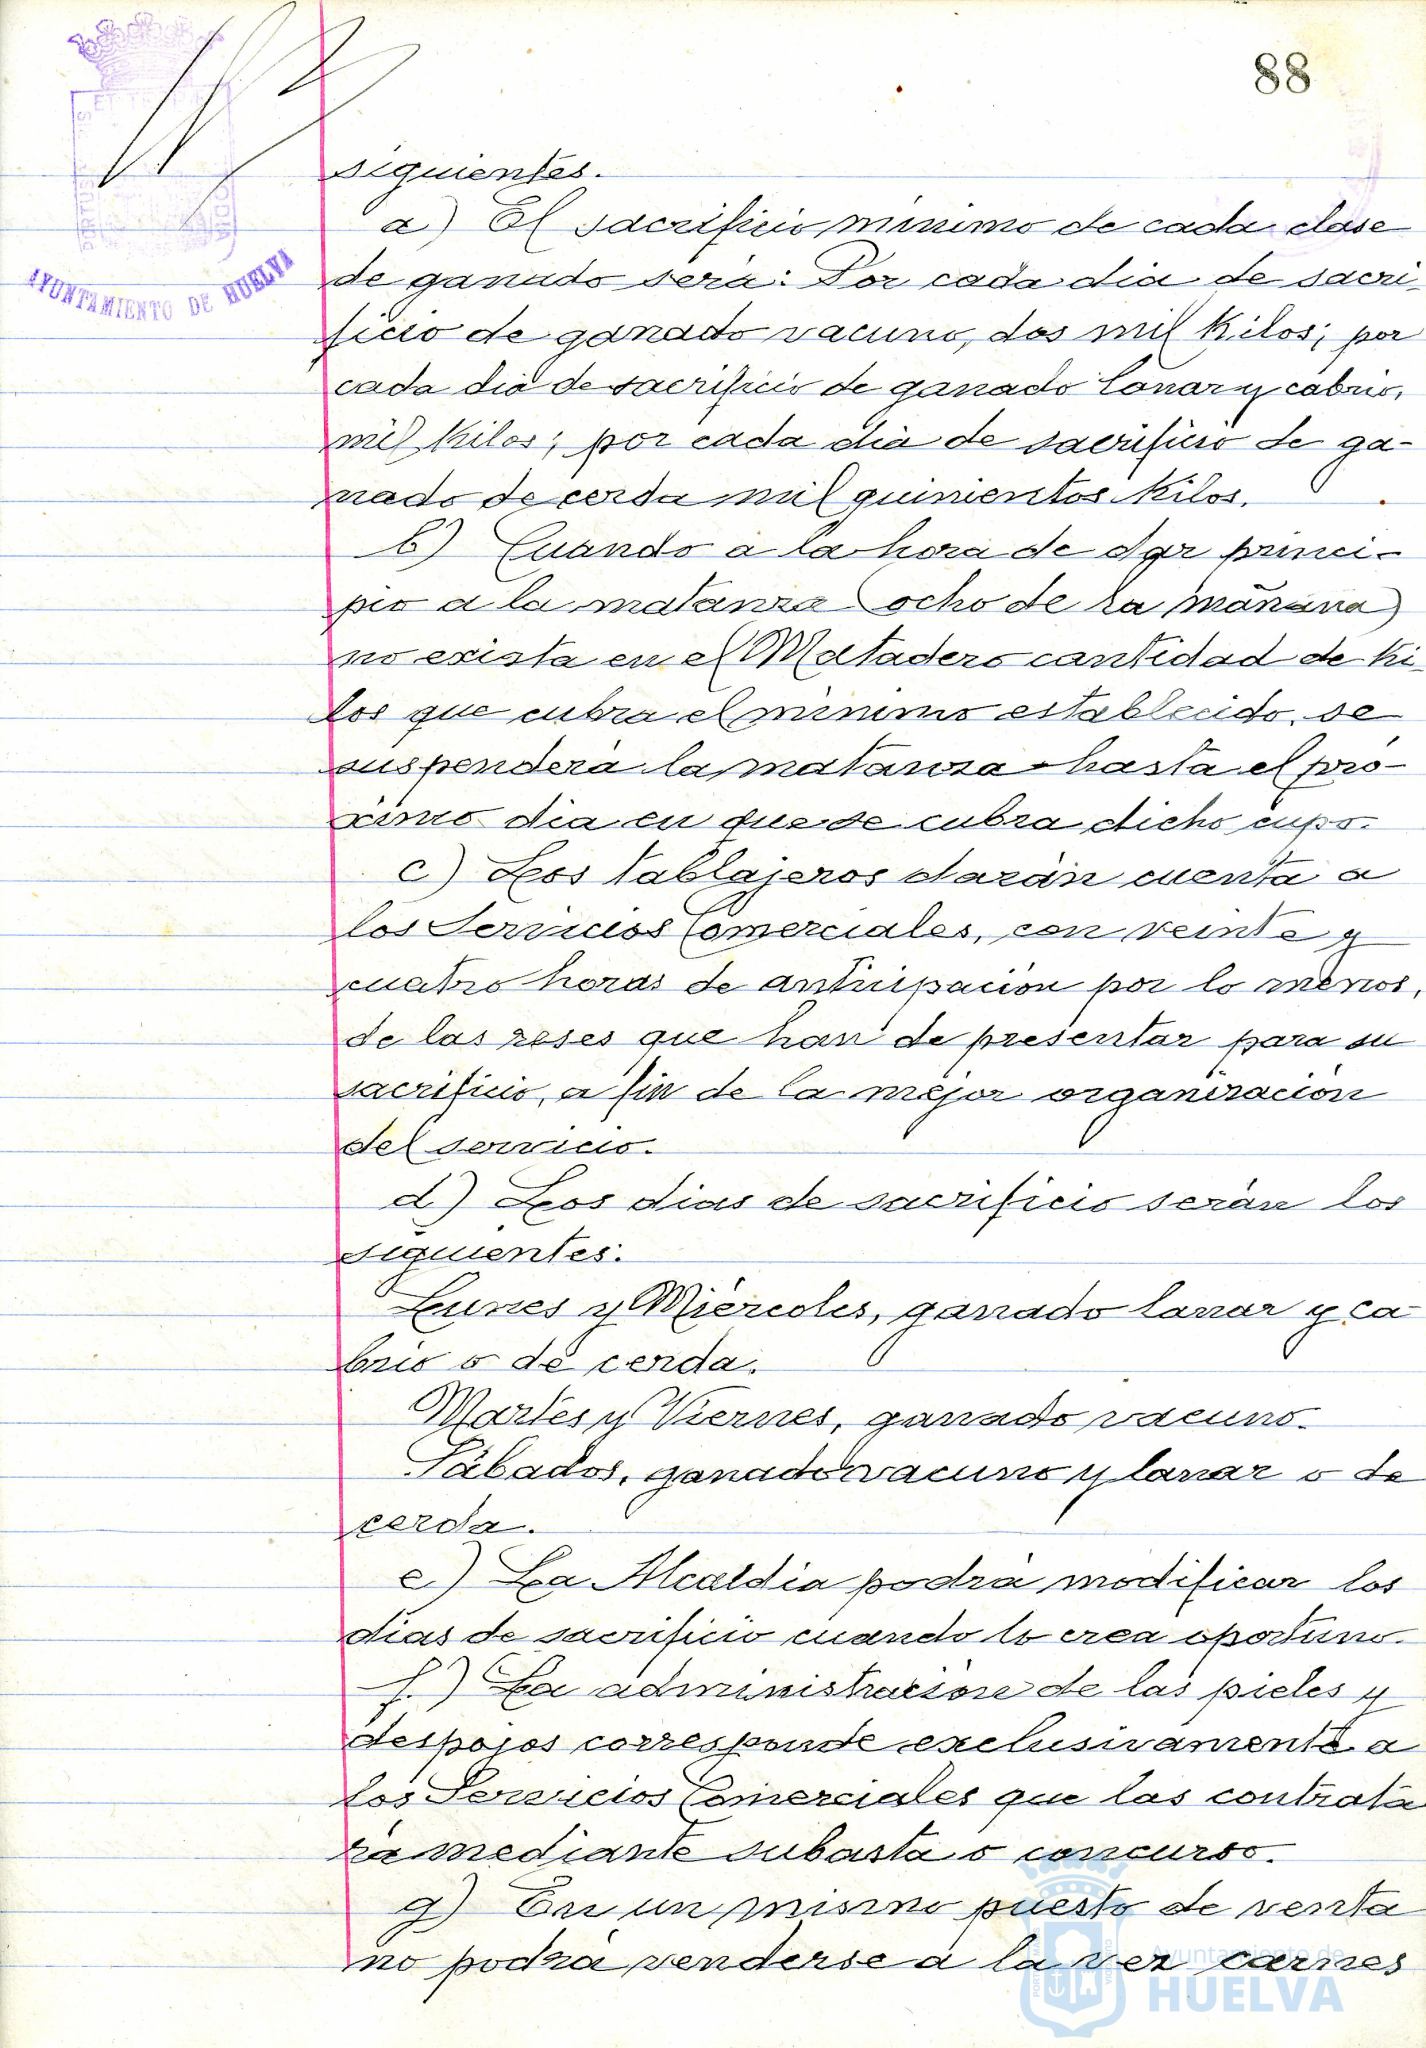 88
AYUNTAMIENTO DE HUELVA
siguientes.
a) El sacrificio minimo de cada clase
de ganado será: Por cada dia de sacri-
ficio de ganado vacuno, dos mil Kilos; por
cada dia de sacrificio de ganado lanar y cabrio,
mil Kilos; por cada dia de sacrificio de ga-
nado de cerda mil quinientos Kilos.
b) Cuando a la hora de dar princi-
pio a la matanza (ocho de la mañana)
no exista en el Matadero cantidad de Ki-
los que cubra el minimo establecido, se
suspenderá la matanza hasta el pró-
ximo dia en que se cubra dicho cupo.
c) Los tablajeros darán cuenta a
los Servicios Comerciales, con veinte y
cuatro horas de anticipación por lo menos,
de las reses que han de presentar para su
sacrificio, a fin de la mejor organización
del servicio.
d) Los dias de sacrificio serán los
siguientes:
Lunes y Miércoles, ganado lanar y ca
brio o de cerda.
Martes y Viernes, ganado vacuno.
Sábados, ganado vacuno y lanar o de
cerda.
e) La Alcaldia podrá modificar los
dias de sacrificio cuando lo crea oportuno.
f.) La administración de las pieles y
despojos corresponde exclusivamente a
los Servicios Comerciales que las contrata
rá mediante subasta o concurso.
g) En un mismo puesto de venta
no podrá venderse a la vez carnes
Ayuntamiento de
HUELVA